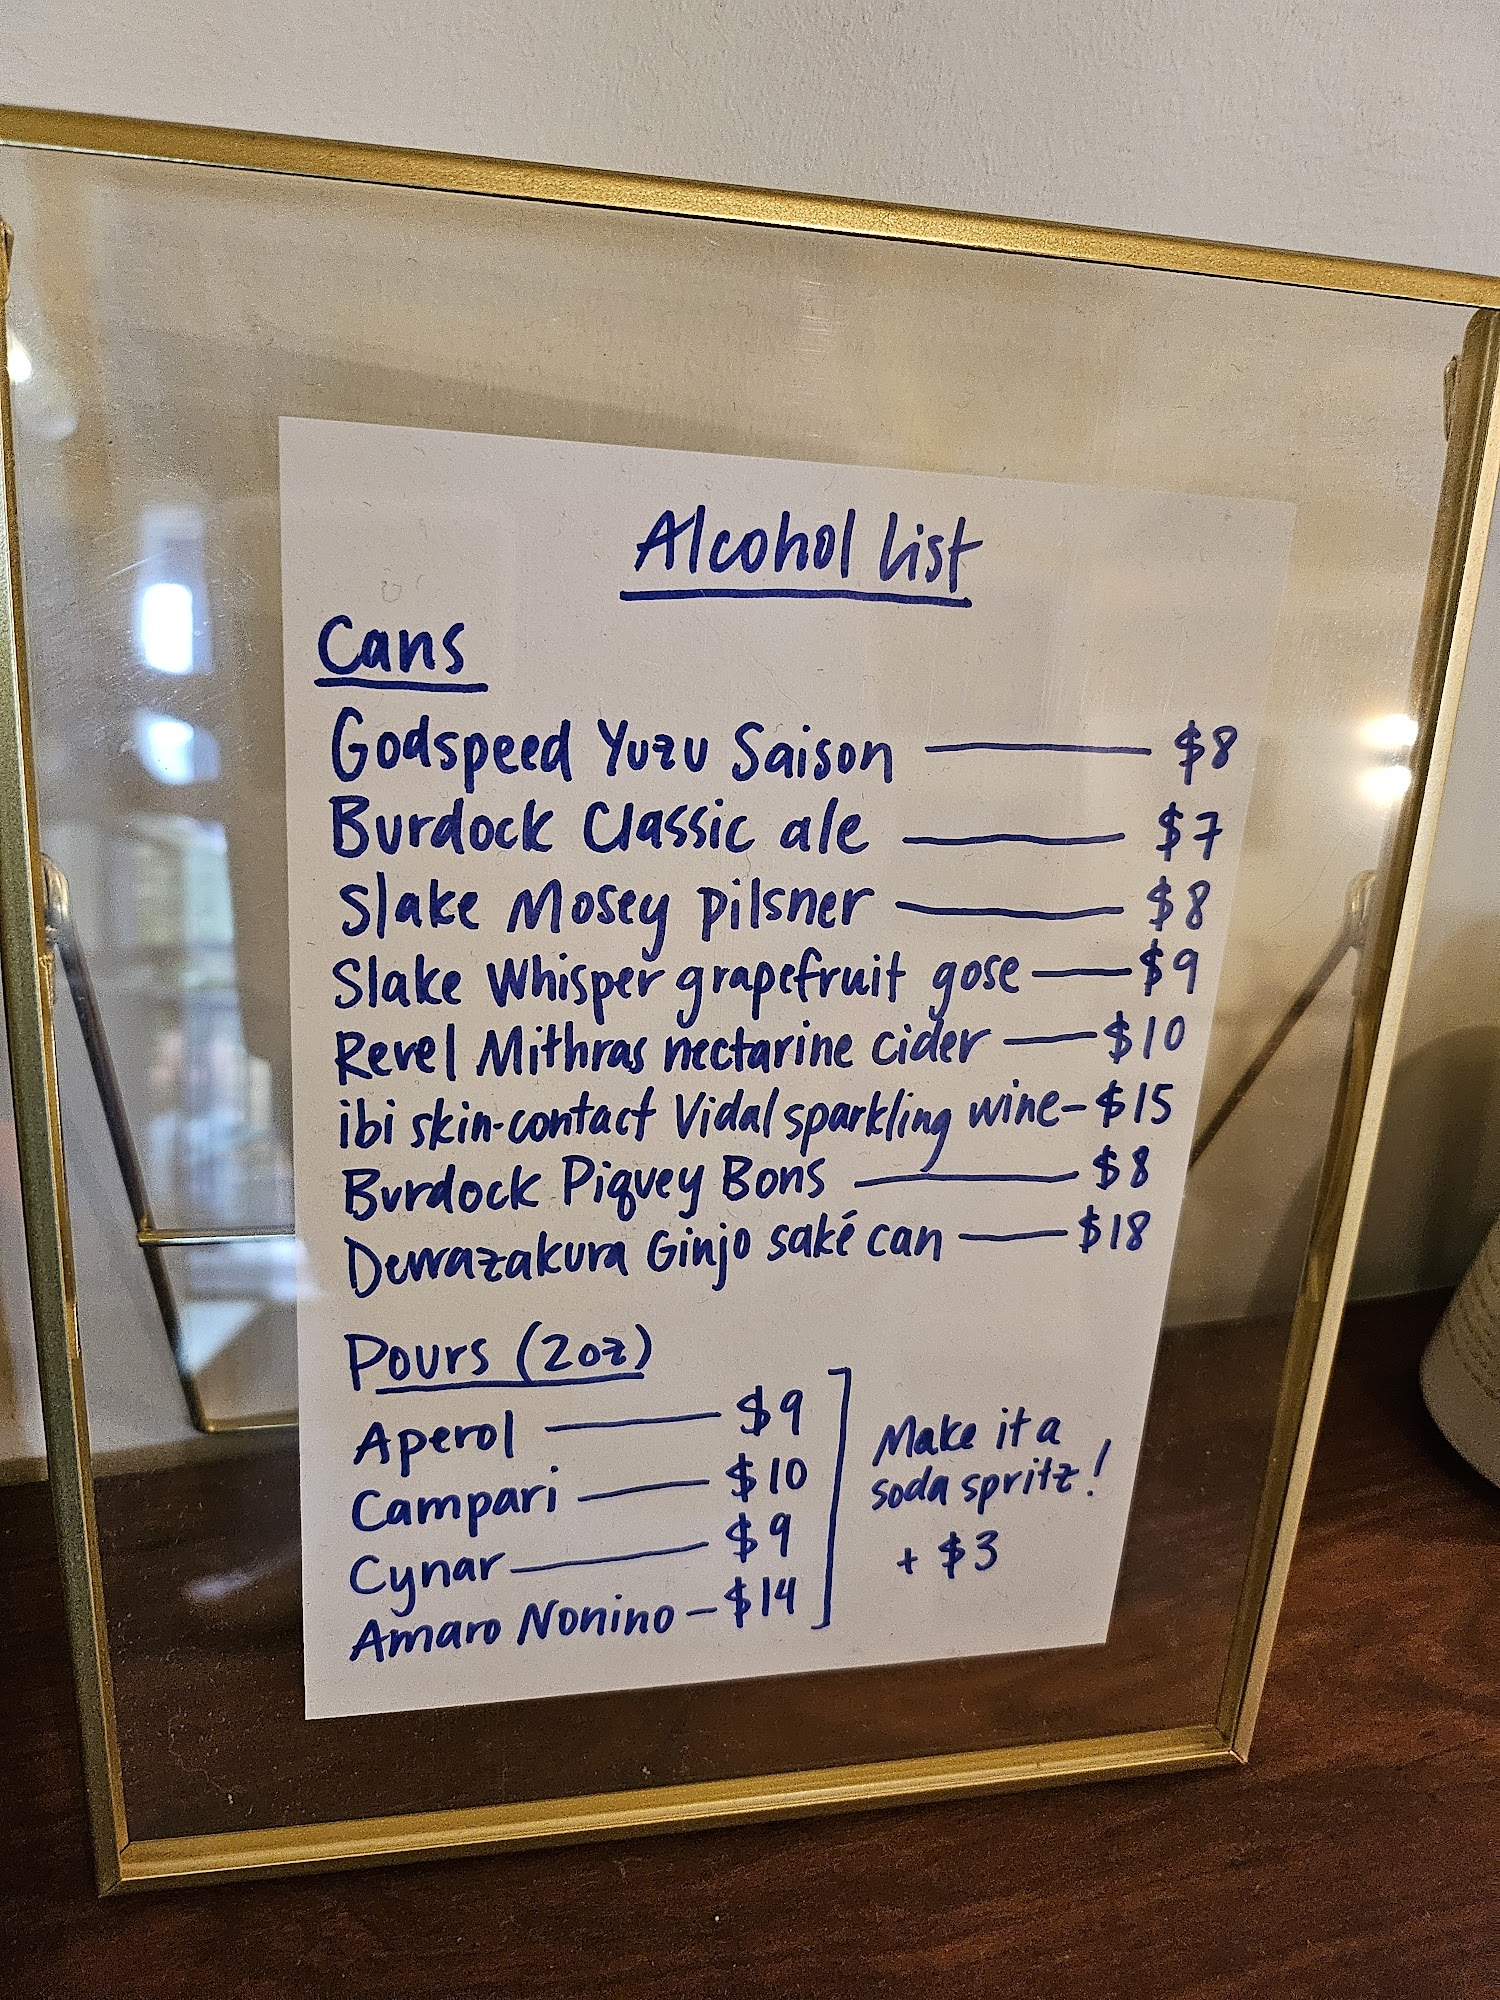 Alcohol list
Cans
Godspeed Yuzu Saison — $8
Burdock Classic ale — $7
Slake Mosey pilsner — $8
Slake Whisper grapefruit gose — $9
Revel Mithras nectarine cider — $10
ibi skin-contact Vidal sparkling wine - $15
Burdock Piquey Bons — $8
Dewazakura Ginjo saké can — $18
Pours (2oz)
Aperol — $9
Campari — $10
Cynar — $9
Amaro Nonino - $14
Make it a
soda spritz!
+ $3